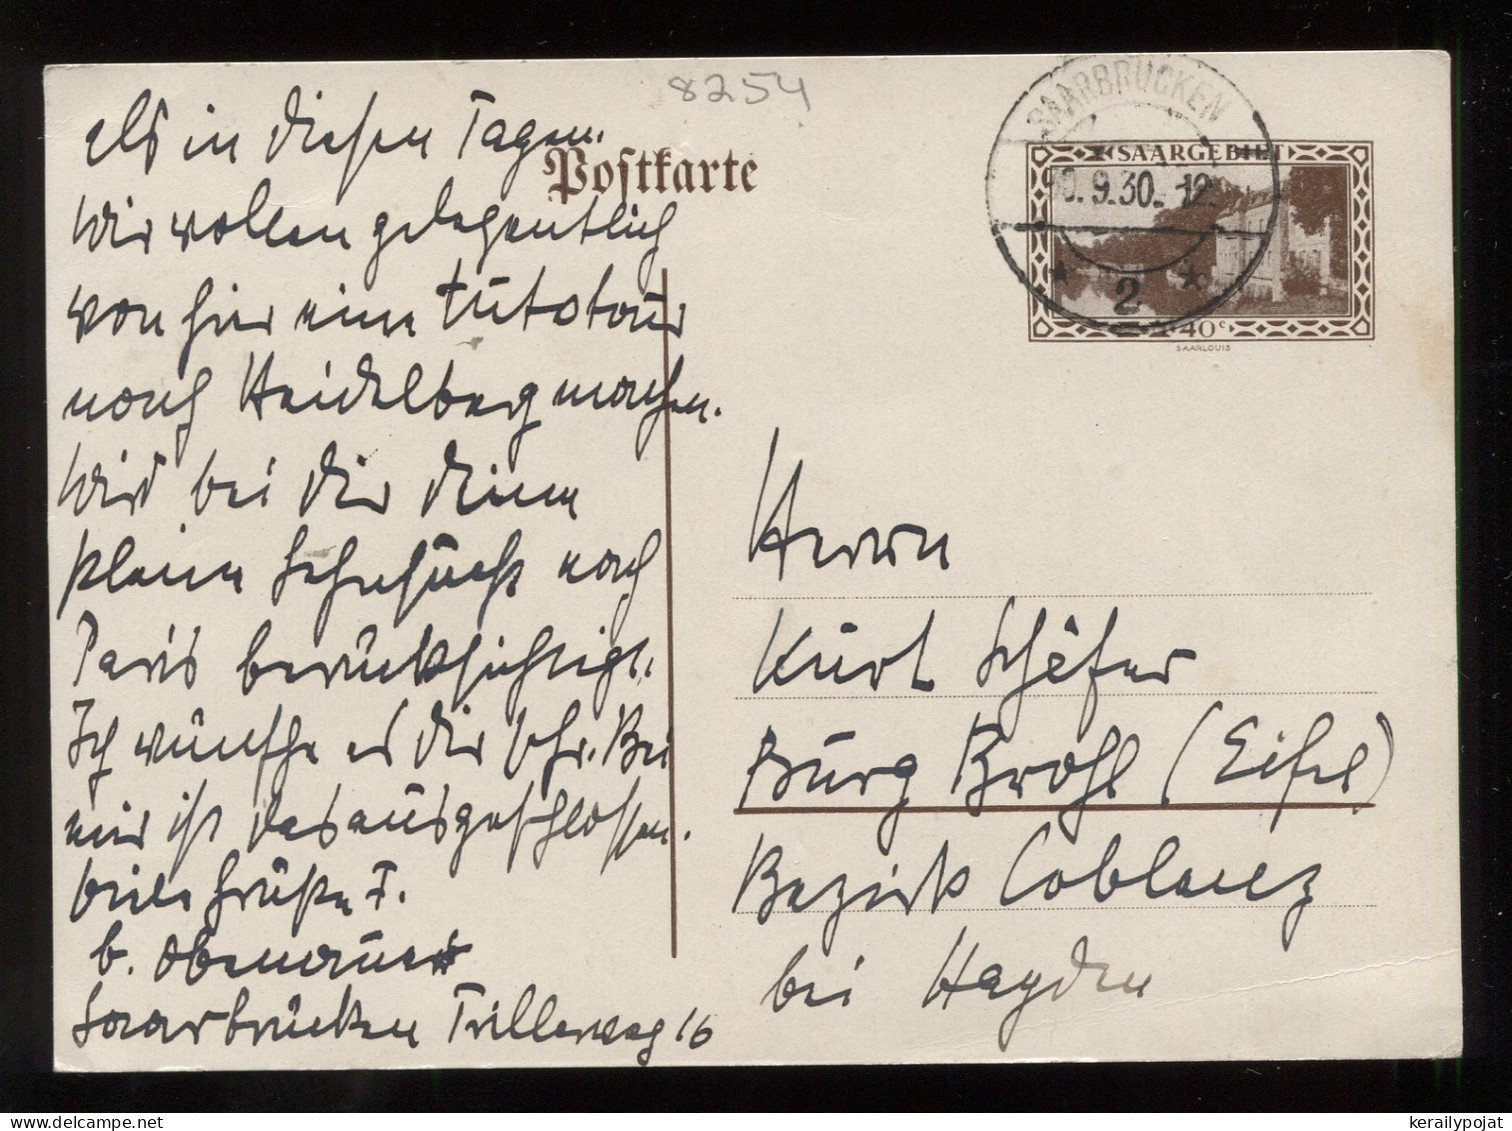 8254
als in diesen Tagen.
Wir wollen gelegentlich
von hier eine Autotour
nach Heidelberg machen.
Wird bei Dir Deine
kleine Sehnsucht nach
Paris berücksichtigt.
Ich wünsche es Dir sehr. Bei
mir ist das ausgeschlossen.
Viele Grüße F.
b. Obenauer
Saarbrücken Trillerweg 16
Postkarte
SAARBRÜCKEN
9.30. 12
2
SAARGEBIET
40 c
SAARLOUIS
Herrn
Kurt Schäfer
Burg Brohl (Eifel)
Bezirk Coblenz
bei Hayden
kerailypojat.com